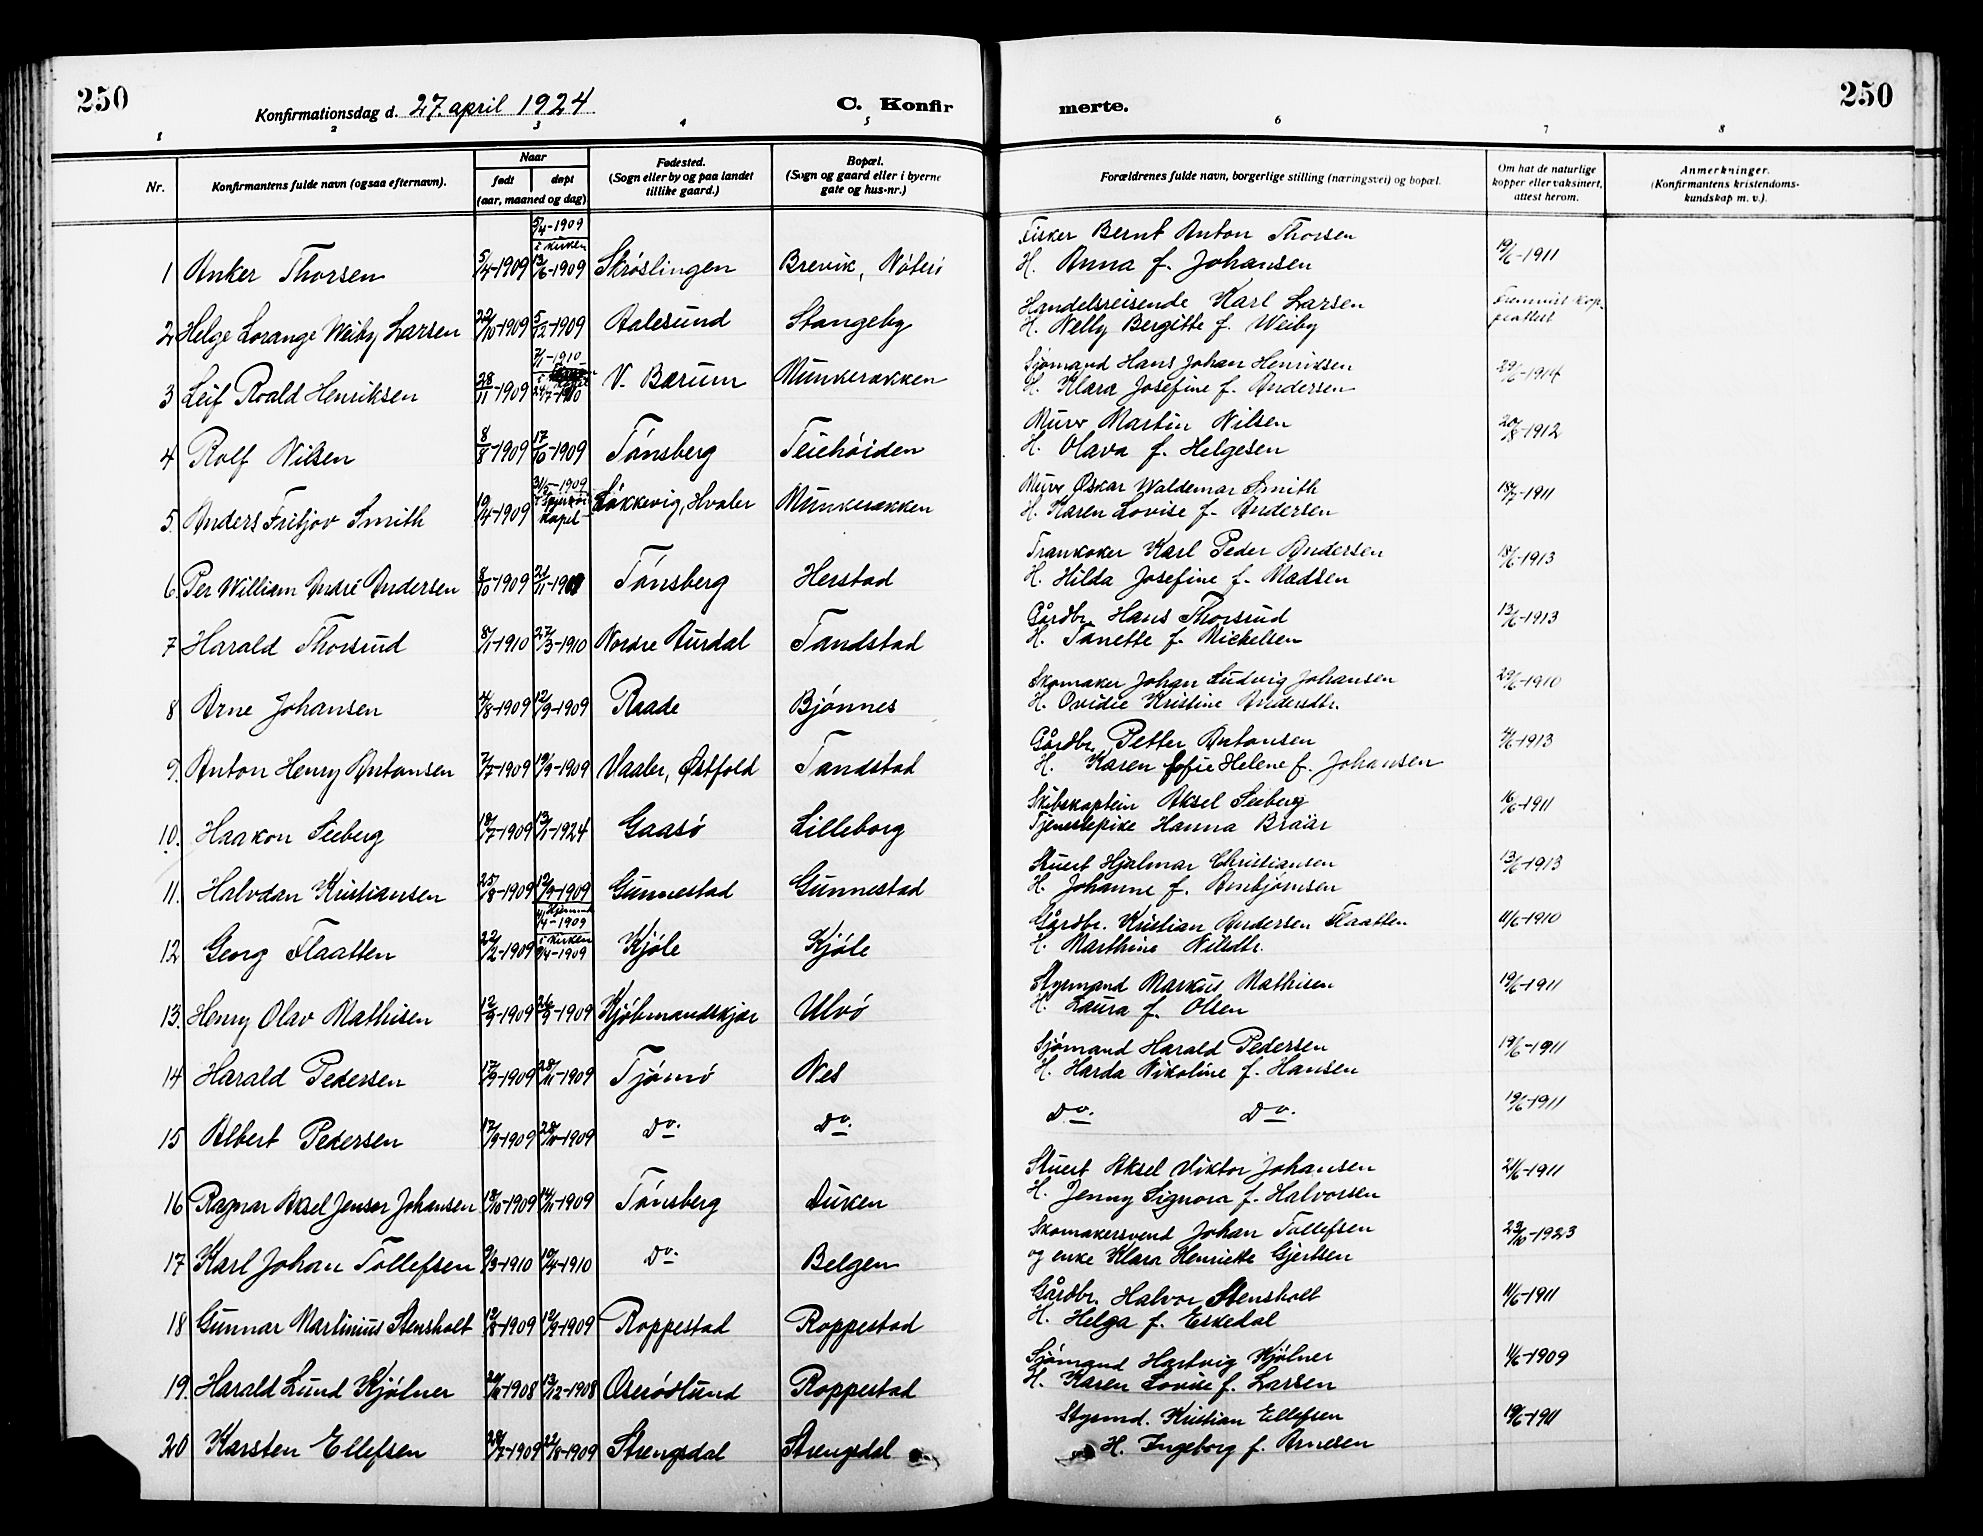 250
Konfirmationsdag d. 27. april 1924
C. Konfirmerte.
250
1 2 3 4 5 6 7 8
Nr.
Konfirmantens fulde navn (ogsaa efternavn).
Naar
født
døpt
(aar, maaned og dag)
Fødested.
(Sogn eller by og paa landet tillike gaard.)
Bopæl.
(Sogn og gaard eller i byerne gate og hus-nr.)
Forældrenes fulde navn, borgerlige stilling (næringsvei) og bopæl.
Om hat de naturlige kopper eller vaksinert, attest herom.
Anmerkninger.
(Konfirmantens kristendomskundskap m. v.).
5/4-1909 i kirken
Fisker Bernt Anton Thorsen
1 Anker Thorsen 5/4-1909 13/6-1909 Skrøslingen Brevik, Nøterø H. Anna f. Johansen 19/6-1911
Handelsreisende Karl Larsen
2 Helge Lorange Weiby Larsen 22/10-1909 5/12-1909 Aalesund Stangeby H. Nelly Bergitte f. Weiby
7/1-1910
Sjømand Hans Johan Henriksen
3 Leif Roald Henriksen 28/11-1909 24/7-1910 V. Bærum Munkerækken H. Klara Josefine f. Andersen 29/6-1914
Murer Martin Nilsen
4 Rolf Nilsen 8/8-1909 17/10-1909 Tønsberg Teiehøiden H. Olava f. Helgesen 20/8-1912
31/5-1909
Kapel
Murer Oskar Waldemar Smith
5. Anders Fritjov Smith 19/4-1909 Løkkevig, Hvaler Munkerækken H. Karen Lovise f. Andersen 18/7-1911
Trankoker Karl Peder Andersen
6. Per William André Andersen 8/10-1909 21/11-1909 Tønsberg Herstad H. Hilda Josefine f. Madsen 18/6-1913
Gårdbr. Hans Thorsrud
7 Harald Thorsrud 8/1-1910 27/3-1910 Nordre Aurdal Tandstad H. Tanette f. Mickelsen 13/6-1913
Skomaker Johan Ludvig Johansen
8 Arne Johansen 4/8-1909 12/9-1909 Raade Bjønnes H. Ovidie Kristine Andersdtr. 29/6-1910
Gårdbr. Petter Antonsen
9. Anton Henry Antonsen 7/7-1909 19/9-1909 Vaaler, Østfold Tandstad H. Karen Sofie Helene f. Johansen 4/6-1913
Skibskaptein Aksel Seeberg
10. Haakon Seeberg 18/7-1909 13/1-1924 Gaasø Lilleborg Tjenestepike Hanna Braär 16/6-1911
Stuert Hjalmar Christiansen
11. Halvdan Kristiansen 25/8-1909 19/9-1909 Gunnestad Gunnestad H. Johanne f. Arnbjørnsen 13/6-1913
4/4-1909 i kirken
Gårdbr. Kristian Andersen Flaatten
12 Georg Flaatten 22/2-1909 Kjøle Kjøle H. Marthine Nilsdtr. 11/6-1910
Styrmand Markus Mathisen
13. Henry Olav Mathisen 12/9-1909 Kjøbmandskjær Ulvø H. Laura f. Olsen 19/6-1911
Sjømand Harald Pedersen
14 Harald Pedersen 17/9-1909 28/11-1909 Tjømø Nes H. Harda Nikoline f. Hansen 19/6-1911
15 Albert Pedersen 17/9-1909 28/11-1909 Do. Do. Do. Do. 19/6-1911
Stuert Aksel Viktor Johansen
16 Ragnar Aksel Jensør Johansen 18/10-1909 14/11-1909 Tønsberg Duken H. Jenny Signora f. Halvorsen 21/6-1911
Skomakersvend Johan Tollefsen
17 Karl Johan Tollefsen 9/3-1910 10/4-1910 Do. Belgen og enke Klara Henriette Gjertsen 23/10-1923
Gårdbr. Halvor Stensholt
18 Gunnar Martinius Stensholt 12/8-1909 19/9-1909 Roppestad Roppestad H. Helga f. Eskedal 11/6-1911
Sjømand Hartvig Kjølner
19. Harald Lund Kjølner 13/12-1908 Oserødlund Roppestad H. Karen Lovise f. Larsen 4/6-1909
Styrmd. Kristian Ellefsen
20 Karsten Ellefsen 22/8-1909 Strengsdal Strengsdal H. Ingeborg f. Arnesen 19/6-1911